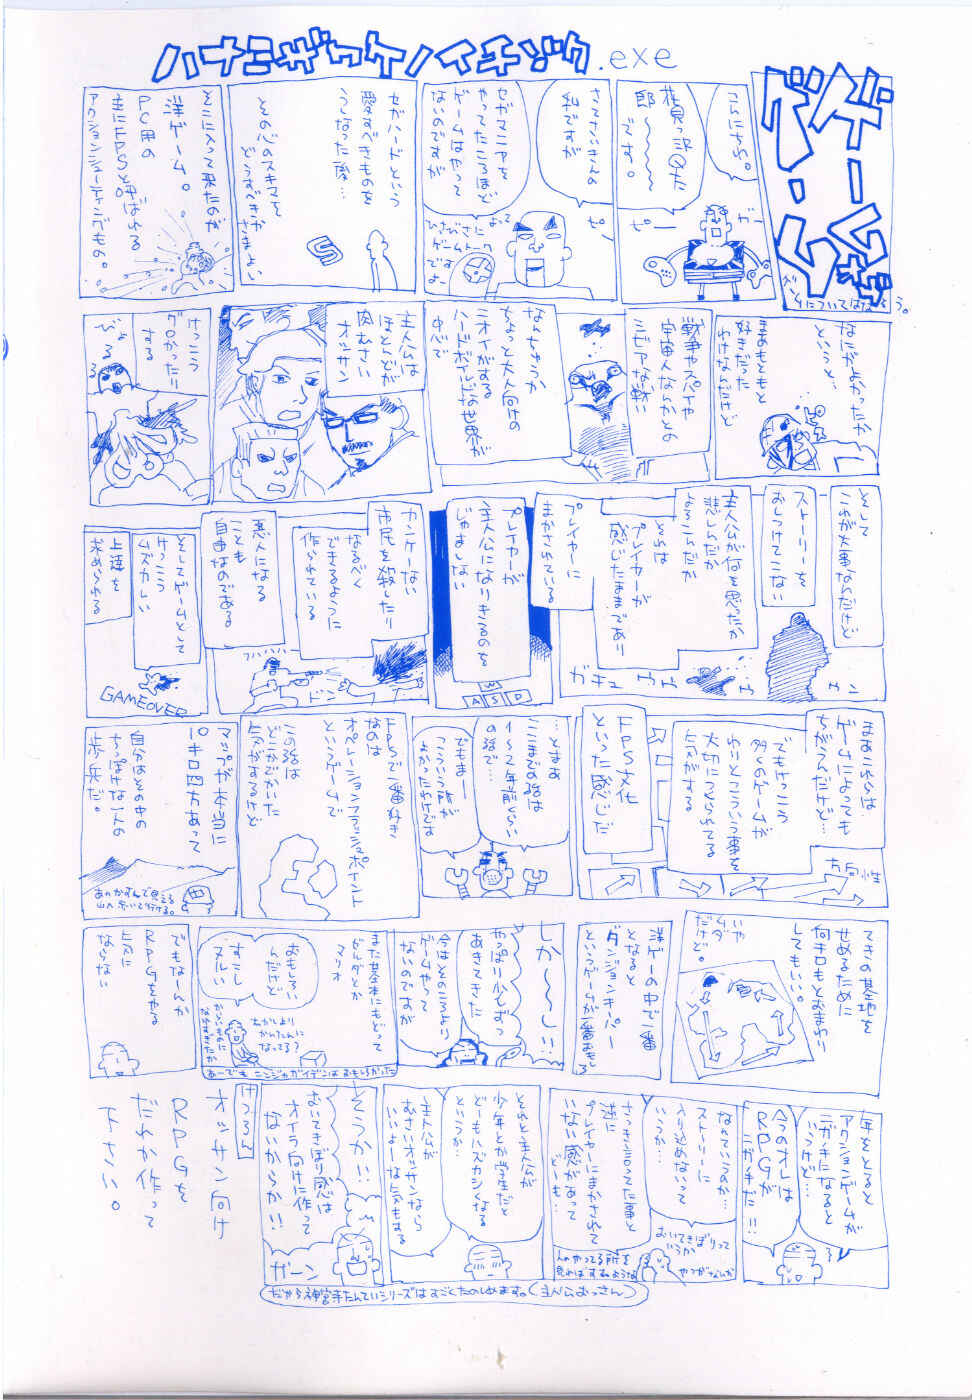 ハナミザワケノイチゾク.exe
ゲームザ
ゲーム
ゲームについてはなそう。
こんにちわ。
花見っ沢Q太
郎〜〜〜〜
です。
ガー
ピー
さてさいさんの
私ですが
セガマニアを
やってたころほど
ゲームはやって
ないのですが
ピー
おって
ひさびさに
ゲームトーク
ですよ
セガハードという
愛すべきものを
うしなった後…
その心のスキマを
どうすべきか
さまよい
S
そこに入って来たのが
洋ゲーム。
PC用の
主にFPSと呼ばれる
アクションシューティングもの。
なにがよかったか
というと…
まあもともと
好きだった
わけなんだけど
戦争やスパイや
宇宙人なんかとの
シビアな戦い
なんちゅうか
ちょっと大人向けの
ニオイがする
ハードボイルドな世界が
中心で
主人公は
ほとんどが
肉むさい
オッサン
けっこう
グロかったり
する
びょる
そして
これが大事なんだけど
ストーリーを
おしつけてこない
主人公が何を思ったか
悲しんだか
よろこんだか
それは
プレイヤーが
感じたままであり
ガキュ
プレイヤーに
まかされている
プレイヤーが
主人公になりきるのを
じゃましない
W
A S D
カンケーない
市民を殺したり
なるべく
できるように
作られている
悪人になる
ことも
自由なのである
ブハハハハ
ドン
そしてゲームとして
けっこう
ムズカしい
上達を
求められる
GAMEOVER
まあこれらは
ゲームによっても
ちがうんだけど…
でもけっこう
多くのゲームが
わりとこういう事を
大切につくられてる
気がする
方向性
FPS文化
といった感じだ
…とまあ
ここまでの話は
1〜2年前くらい
の話で…
でもまー
こういう所が
よかったわけです
FPSで一番好き
なのは
オペレーションフラッシュポイント
というゲームで
この話は
どこかでかいた
気がするけど
マップが本当に
10キロ四方あって
自分はその中の
ちっぽけな一人の
歩兵だ。
あのかすんで見える
山へ歩いて行ける。
てきの基地を
せめるために
何キロもとおまわり
してもいい。
いや
ムダ
だけど。
洋ゲーの中で一番
となると
ダンジョンキーパー
というゲームが一番おもしろ
しか〜〜し!!
やっぱり少しずつ
あきてきた
今はそのころより
ゲームやって
ないのですが
また基本にもどって
マリオ
ゼルダとか
おもしろい
んだけど
すこし
ヌルい
むかしより
かんたんに
なってる?
からいものに
なれすぎたか
あーでも ニンジャガイデンは おもしろかった
でもなーんか
RPGをやる
気に
ならない
年をとると
アクションゲームが
ニガテになると
いうけど…
今のオレは
RPGが
ニガテだ!!
なんていうのか…
ストーリーに
入り込めないって
いうか…
さっき言ってた事と
逆に
プレイヤーにまかされて
いない感があって
どーも…
おいてきぼりって
いうか
人のやってる所を
見ればすむような
やつがなんか
それと主人公が
少年とか学生だと
どーもハズカシくなる
というか…
主人公が
むさいオッサンなら
いいよーな気もする
そうか!!
おいてきぼり感は
オイラ向けに作って
ないからか!!
ガーン
だから神宮寺たんていシリーズはすごくたのしめます。(主人公おっさん)
けつろん
オッサン向け
RPGを
だれか作って
下さい。